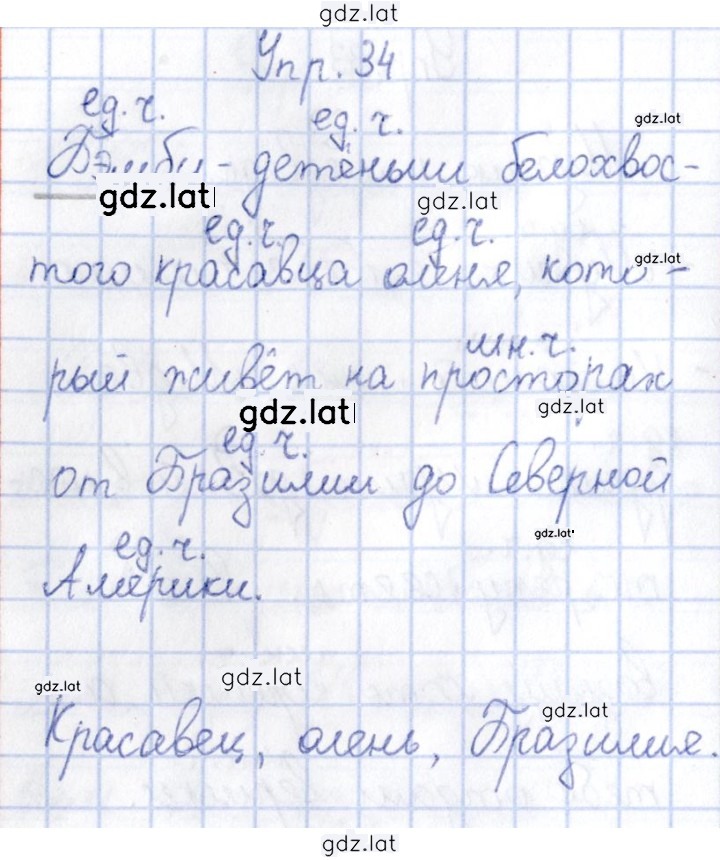 gdz.lat
Упр. 34
ед. ч.
ед. ч.
gdz.lat
Бэмби - детёныш белохвос-
gdz.lat
gdz.lat
ед. ч.
ед. ч.
того красавца оленя, кото-
gdz.lat
мн. ч.
рый живёт на просторах
gdz.lat
gdz.lat
ед. ч.
от Бразилии до Северной
gdz.lat
ед. ч.
Америки.
gdz.lat
gdz.lat
gdz.lat
Красавец, олень, Бразилия.
gdz.lat